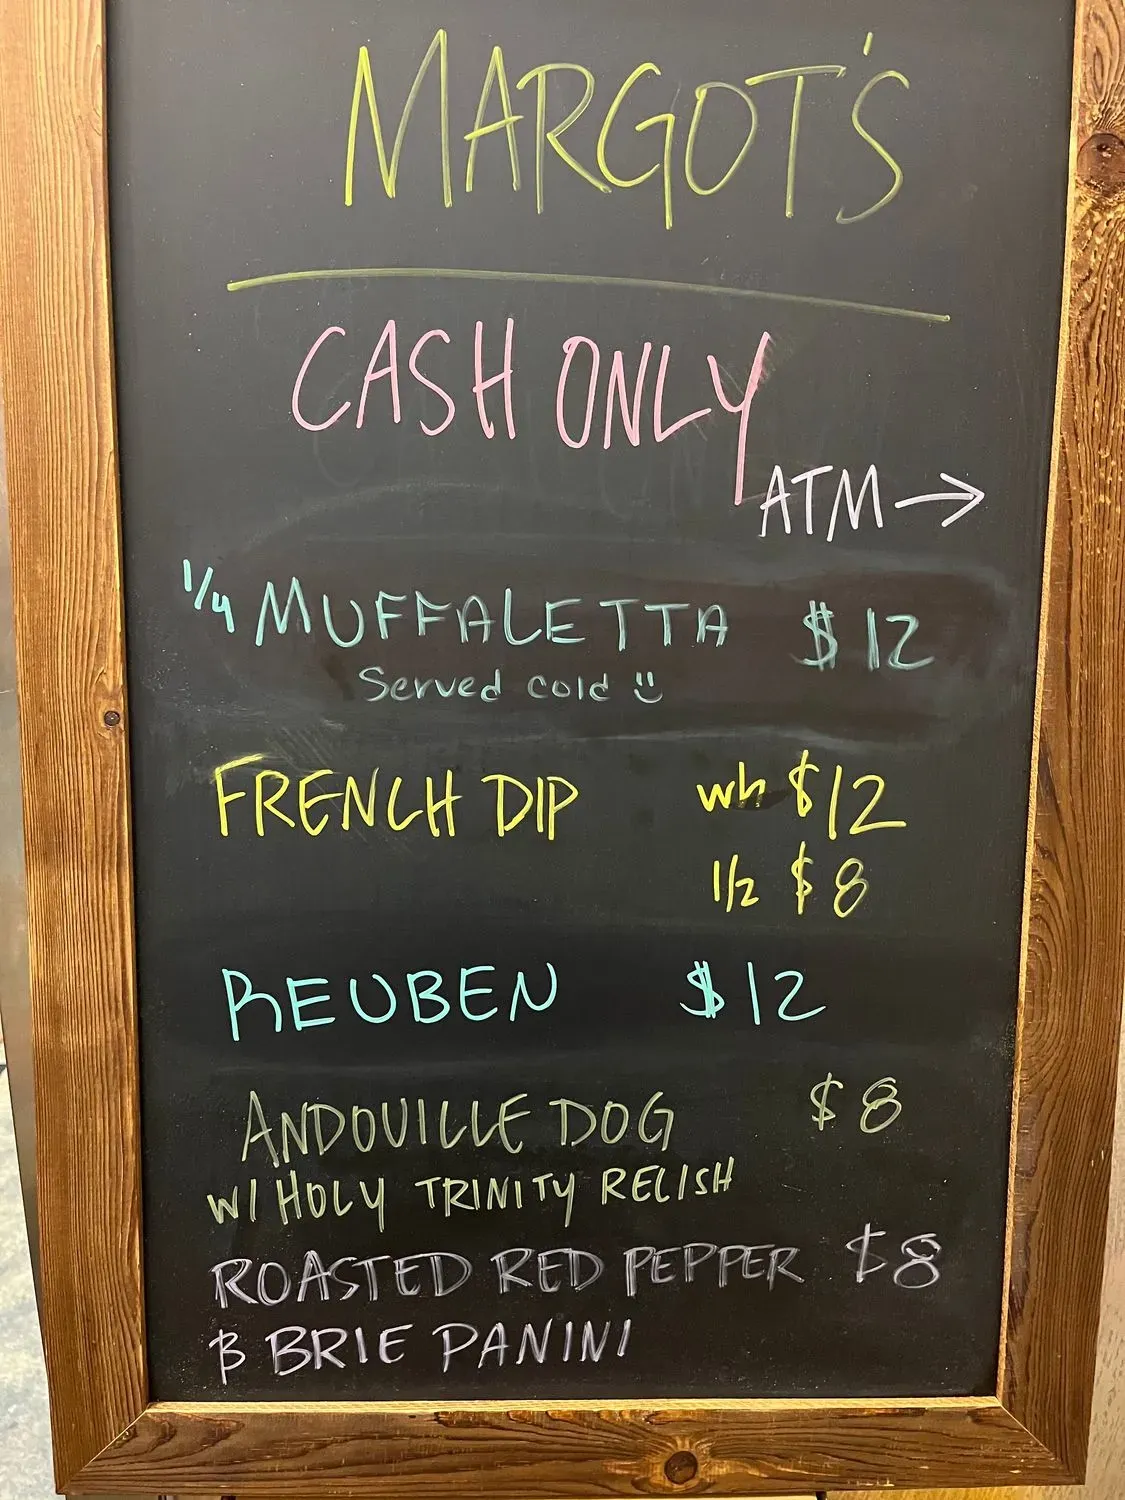 MARGOT'S
CASH ONLY
ATM →
1/4 MUFFALETTA $12
Served cold
FRENCH DIP wh $12
1/2 $8
REUBEN $12
ANDOUILLE DOG $8
W/ HOLY TRINITY RELISH
ROASTED RED PEPPER $8
& BRIE PANINI